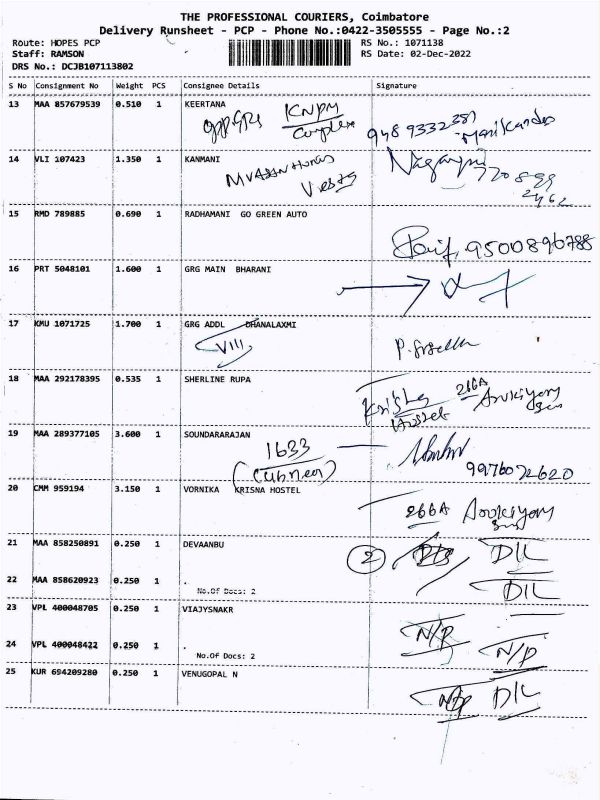 THE PROFESSIONAL COURIERS, Coimbatore
Delivery Runsheet - PCP - Phone No.:0422-3505555 - Page No.:2
Route: HOPES PCP
RS No.: 1071138
Staff: RAMSON
RS Date: 02-Dec-2022
DRS No.: DCJB107113802
S No Consignment No Weight PCS Consignee Details Signature
13 MAA 857679539 0.510 1 KEERTANA
KNPM
Complex
948 9332 351
Manikandan
14 VLI 107423 1.350 1 KANMANI
770 899
2462
15 RMD 789885 0.690 1 RADHAMANI GO GREEN AUTO
9500896788
16 PRT 5048101 1.600 1 GRG MAIN BHARANI
17 KMU 1071725 1.700 1 GRG ADDL DHANALAXMI
VIII
18 MAA 292178395 0.535 1 SHERLINE RUPA
Krishna
Hostel
266A
19 MAA 289377105 3.600 1 SOUNDARARAJAN
1633
9976072620
20 CMM 959194 3.150 1 VORNIKA KRISNA HOSTEL
266A
21 MAA 858250891 0.250 1 DEVAANBU
2
D/L
22 MAA 858620923 0.250 1 .
No.Of Docs: 2
D/L
23 VPL 400048705 0.250 1 VIAJYSNAKR
N/P
24 VPL 400048422 0.250 1 .
No.Of Docs: 2
N/P
25 KUR 694209280 0.250 1 VENUGOPAL N
D/L